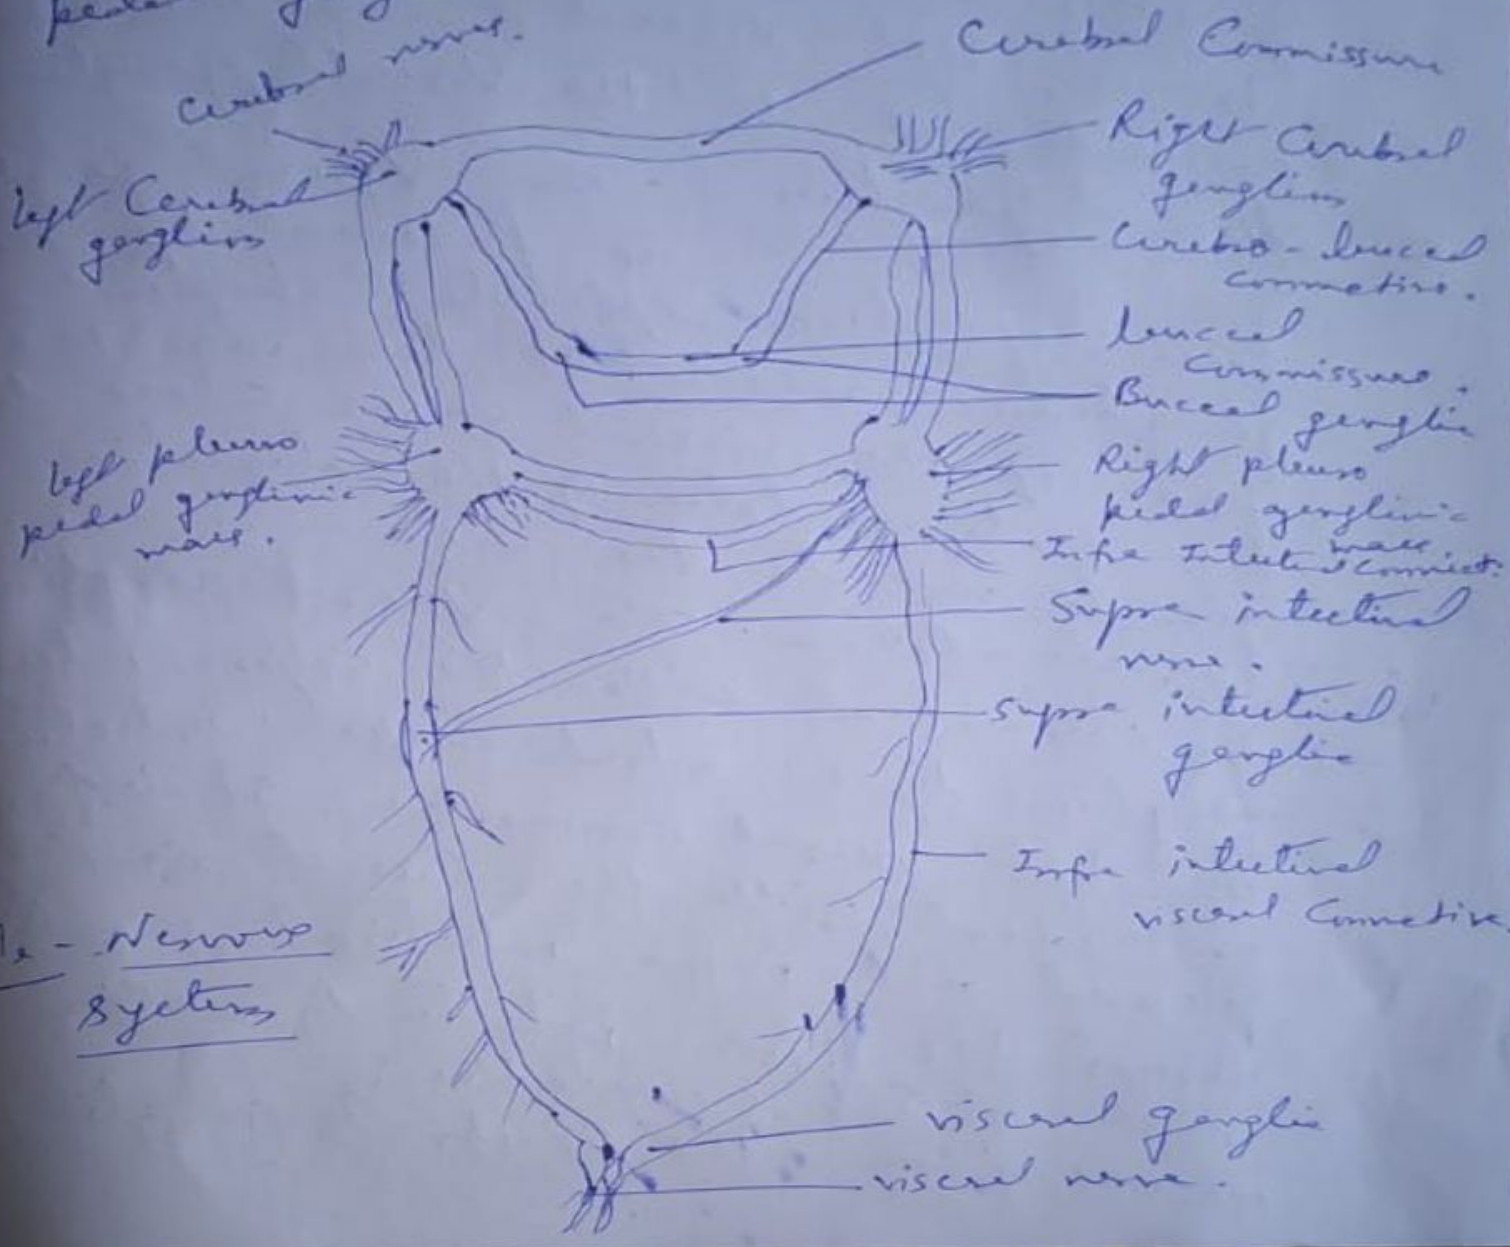 Cerebral nerves.
Cerebral Commissure
Right Cerebral
ganglion
left Cerebral
ganglion
Cerebro - buccal
connective.
buccal
Commissure.
Buccal ganglia
left pleuro
pedal ganglionic
mass.
Right pleuro
pedal ganglionic
mass.
Infra Intestinal Connect.
Supra intestinal
nerve.
Supra intestinal
ganglia
Infra intestinal
visceral Connective
- Nervous
System
visceral ganglia
visceral nerve.